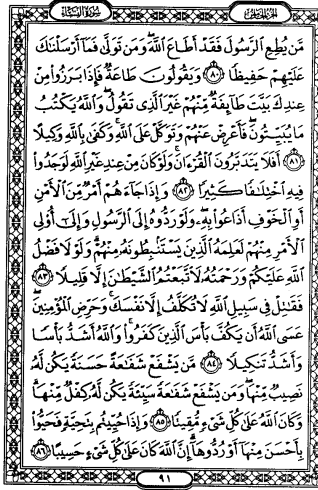 الجزء الخامس
سورة النساء
مَّن يُطِعِ ٱلرَّسُولَ فَقَدْ أَطَاعَ ٱللَّهَ ۖ وَمَن تَوَلَّىٰ فَمَآ أَرْسَلْنَـٰكَ
عَلَيْهِمْ حَفِيظًا ٨٠ وَيَقُولُونَ طَاعَةٌ فَإِذَا بَرَزُوا۟ مِنْ
عِندِكَ بَيَّتَ طَآئِفَةٌ مِّنْهُمْ غَيْرَ ٱلَّذِى تَقُولُ ۖ وَٱللَّهُ يَكْتُبُ
مَا يُبَيِّتُونَ ۖ فَأَعْرِضْ عَنْهُمْ وَتَوَكَّلْ عَلَى ٱللَّهِ ۚ وَكَفَىٰ بِٱللَّهِ وَكِيلًا
٨١ أَفَلَا يَتَدَبَّرُونَ ٱلْقُرْءَانَ ۚ وَلَوْ كَانَ مِنْ عِندِ غَيْرِ ٱللَّهِ لَوَجَدُوا۟
فِيهِ ٱخْتِلَـٰفًا كَثِيرًا ٨٢ وَإِذَا جَآءَهُمْ أَمْرٌ مِّنَ ٱلْأَمْنِ
أَوِ ٱلْخَوْفِ أَذَاعُوا۟ بِهِۦ ۖ وَلَوْ رَدُّوهُ إِلَى ٱلرَّسُولِ وَإِلَىٰٓ أُو۟لِى
ٱلْأَمْرِ مِنْهُمْ لَعَلِمَهُ ٱلَّذِينَ يَسْتَنۢبِطُونَهُۥ مِنْهُمْ ۗ وَلَوْلَا فَضْلُ
ٱللَّهِ عَلَيْكُمْ وَرَحْمَتُهُۥ لَٱتَّبَعْتُمُ ٱلشَّيْطَـٰنَ إِلَّا قَلِيلًا ٨٣
فَقَـٰتِلْ فِى سَبِيلِ ٱللَّهِ لَا تُكَلَّفُ إِلَّا نَفْسَكَ ۚ وَحَرِّضِ ٱلْمُؤْمِنِينَ ۖ
عَسَى ٱللَّهُ أَن يَكُفَّ بَأْسَ ٱلَّذِينَ كَفَرُوا۟ ۚ وَٱللَّهُ أَشَدُّ بَأْسًا
وَأَشَدُّ تَنكِيلًا ٨٤ مَّن يَشْفَعْ شَفَـٰعَةً حَسَنَةً يَكُن لَّهُۥ
نَصِيبٌ مِّنْهَا ۖ وَمَن يَشْفَعْ شَفَـٰعَةً سَيِّئَةً يَكُن لَّهُۥ كِفْلٌ مِّنْهَا ۗ
وَكَانَ ٱللَّهُ عَلَىٰ كُلِّ شَىْءٍ مُّقِيتًا ٨٥ وَإِذَا حُيِّيتُم بِتَحِيَّةٍ فَحَيُّوا۟
بِأَحْسَنَ مِنْهَآ أَوْ رُدُّوهَآ ۗ إِنَّ ٱللَّهَ كَانَ عَلَىٰ كُلِّ شَىْءٍ حَسِيبًا ٨٦
٩١